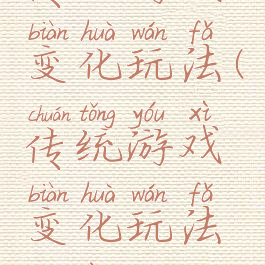 biàn huà wán fǎ
变化玩法(
chuán tǒng yóu xì
传统游戏
biàn huà wán fǎ
变化玩法